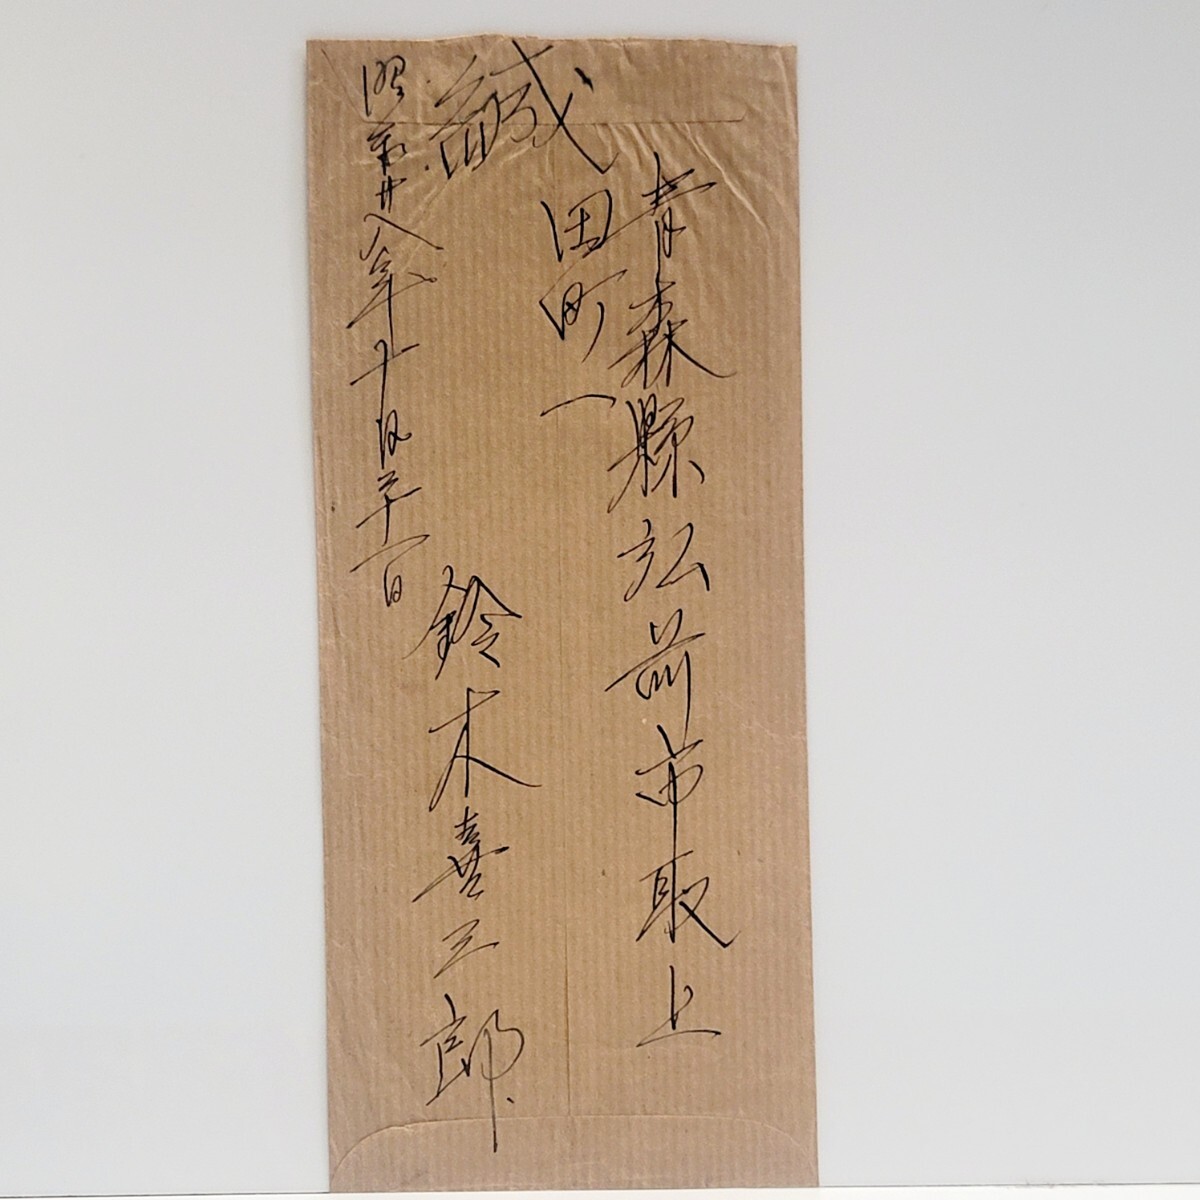 青森縣弘前市取上
田町一
緘
鈴木喜三郎
昭和廿八年十月三十一日